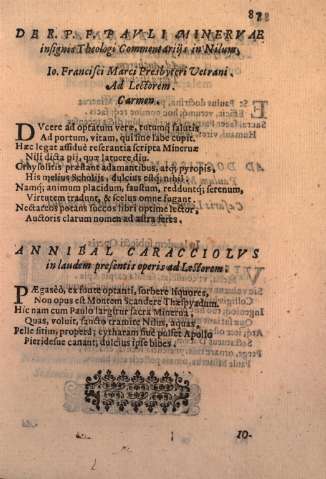 DE R. P. F. PAVLI MINERVAE
insignis Theologi Commentarijs in Nilum,
Io. Francisci Marci Presbyteri Vetrani.
Ad Lectorem.
Carmen.
DVcere ad optatum veræ, totumq; salutis
Ad portum, vitam, qui sine labe copit.
Hæc legat assiduè referantia scripta Mineruæ
Nisi dicta pij, quæ latuere diu.
Crhysolitis præstant adamantibus, atq; pyropis,
His melius scholijs, dulcius estq; nihil.
Namq; animum placidum, faustum, redduntq; serenum,
Virtutem tradunt, & scelus omne fugant.
Nectareos potant succos libri optime lector,
Auctoris clarum nomen ad astra feres.
ANNIBAL CARACCIOLVS
in laudem presentis operis ad Lectorem.
PÆgaseo, ex fonte optanti, sorbere liquores,
Non opus est Montem Scandere Thæspyadum.
Hic nam cum Paulo largitur sacra Minerua,
Quas, voluit, sancto tramite Nilus, aquas.
Pelle sitim properè; cytharam siuè pulset Apollo
Pieridesue canant; dulcius ipse bibes.
10-